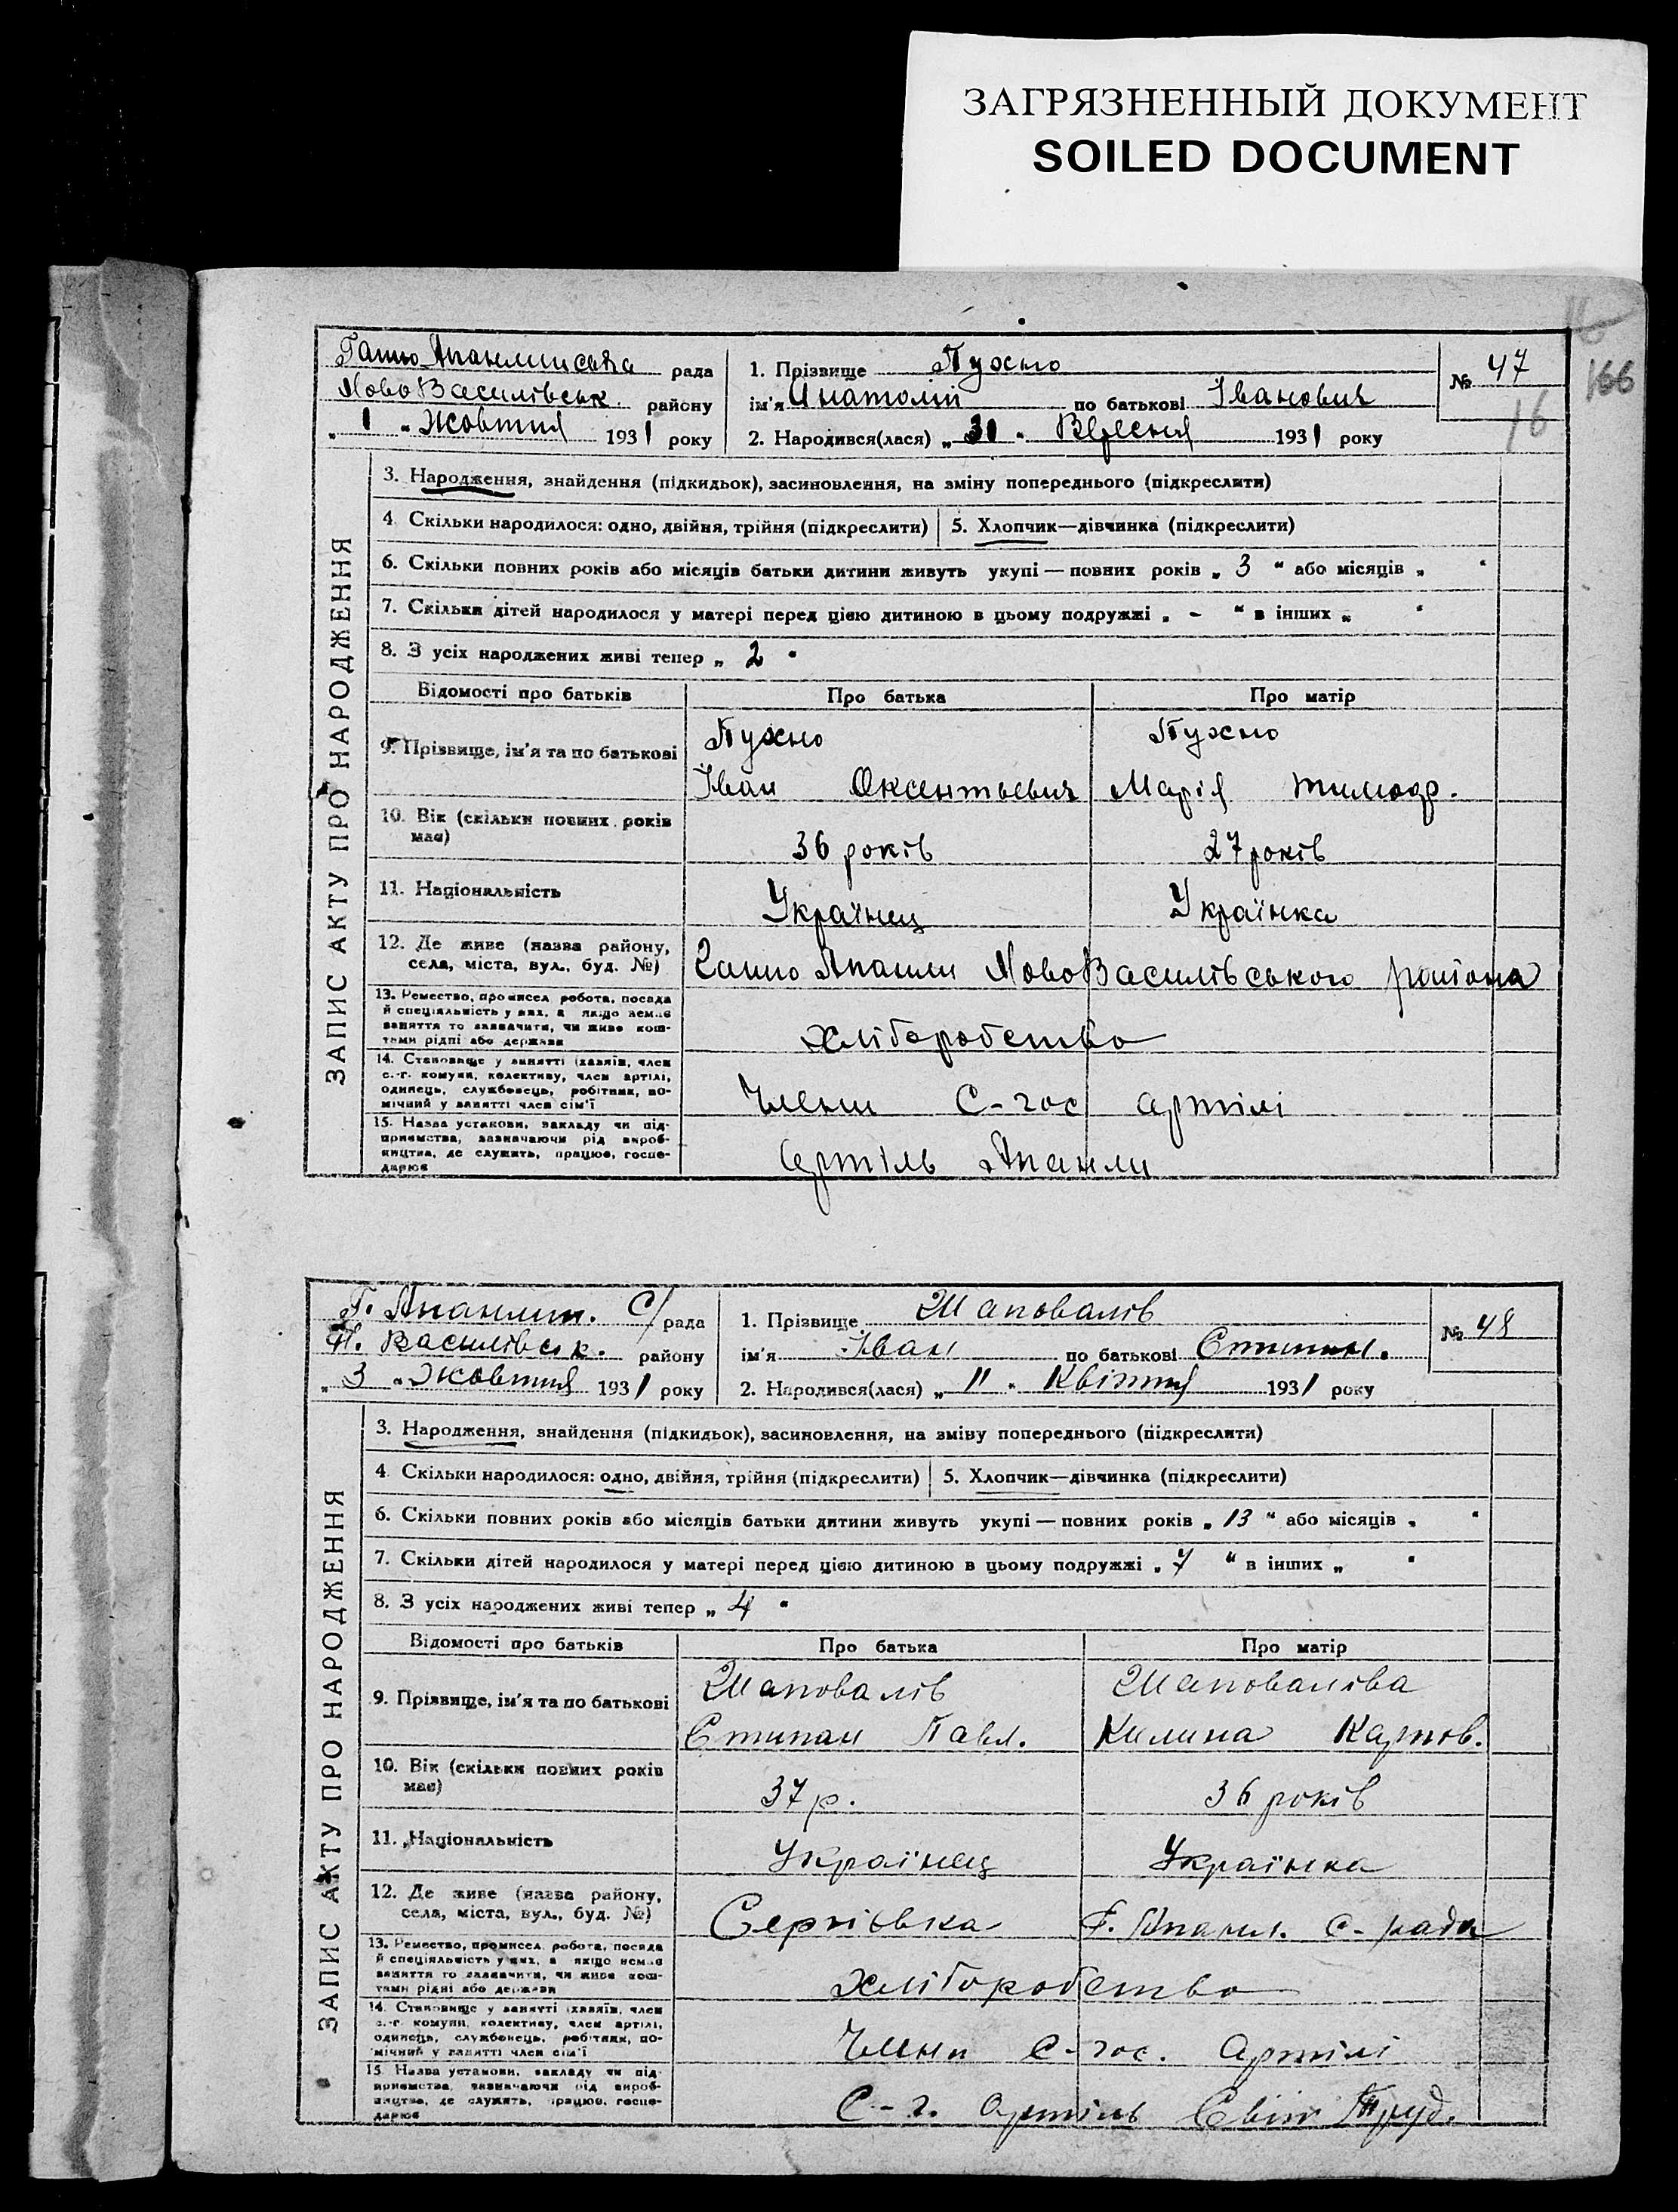 ЗАГРЯЗНЕННЫЙ ДОКУМЕНТ
SOILED DOCUMENT
166
16
рада
НовоВасилівськ. району
„ 1 " Жовтня 1931 року
1. Прізвище Пухно
ім'я Анатолій по батькові Іванович
2. Народився(лася) „ 31 " Вересня 1931 року
№ 47
ЗАПИС АКТУ ПРО НАРОДЖЕННЯ
3. Народження, знайдення (підкидьок), засиновлення, на зміну попереднього (підкреслити)
4. Скільки народилося: одно, двійня, трійня (підкреслити) 5. Хлопчик—дівчинка (підкреслити)
6. Скільки повних років або місяців батьки дитини живуть укупі — повних років „ 3 " або місяців „ "
7. Скільки дітей народилося у матері перед цією дитиною в цьому подружжі „ - " в інших „ "
8. З усіх народжених живі тепер „ 2 "
Відомості про батьків Про батька Про матір
9. Прізвище, ім'я та по батькові
Пухно Пухно
Іван Оксентьевич Марія
10. Вік (скільки повних років має)
36 років 27 років
11. Національність
Українец Українка
12. Де живе (назва району, села, міста, вул., буд. №)
НовоВасилівського района
13. Ремество, промисел, робота, посада
й спеціяльність у них, а якщо немає
заняття то зазначити, чи живе кош-
тами рідні або держави
хліборобство
14. Становище у занятті (хазяїн, член
с.-г. комуни, колективу, член артілі,
одинець, службовець, робітник, по-
мічний у занятті член сім'ї
Члени С-гос артілі
15. Назва установи, закладу чи під-
приємства, зазначаючи рід вироб-
ництва, де служить, працює, госпо-
дарює
артіль Апанли
Г. Апанлин. С/рада
Н. Василівськ. району
„ 3 " Жовтня 1931 року
1. Прізвище Шаповалів
ім'я Іван по батькові Стипан.
2. Народився(лася) „ 11 " Квітня 1931 року
№ 48
ЗАПИС АКТУ ПРО НАРОДЖЕННЯ
3. Народження, знайдення (підкидьок), засиновлення, на зміну попереднього (підкреслити)
4. Скільки народилося: одно, двійня, трійня (підкреслити) 5. Хлопчик—дівчинка (підкреслити)
6. Скільки повних років або місяців батьки дитини живуть укупі — повних років „ 13 " або місяців „ "
7. Скільки дітей народилося у матері перед цією дитиною в цьому подружжі „ 7 " в інших „ "
8. З усіх народжених живі тепер „ 4 "
Відомості про батьків Про батька Про матір
9. Прізвище, ім'я та по батькові
Шаповалів Шаповалова
Стипан Павл. Килина Карпов.
10. Вік (скільки повних років має)
37 р. 36 років
11. Національність
Українец Українка
12. Де живе (назва району, села, міста, вул., буд. №)
Сергіовка Г. Апанл. С-рада
13. Ремество, промисел, робота, посада
й спеціяльність у них, а якщо немає
заняття то зазначити, чи живе кош-
тами рідні або держави
хліборобство
14. Становище у занятті (хазяїн, член
с.-г. комуни, колективу, член артілі,
одинець, службовець, робітник, по-
мічний у занятті член сім'ї
Члени С-гос. Артілі
15. Назва установи, закладу чи під-
приємства, зазначаючи рід вироб-
ництва, де служить, працює, госпо-
дарює
С-г. артіль Світ Труд.